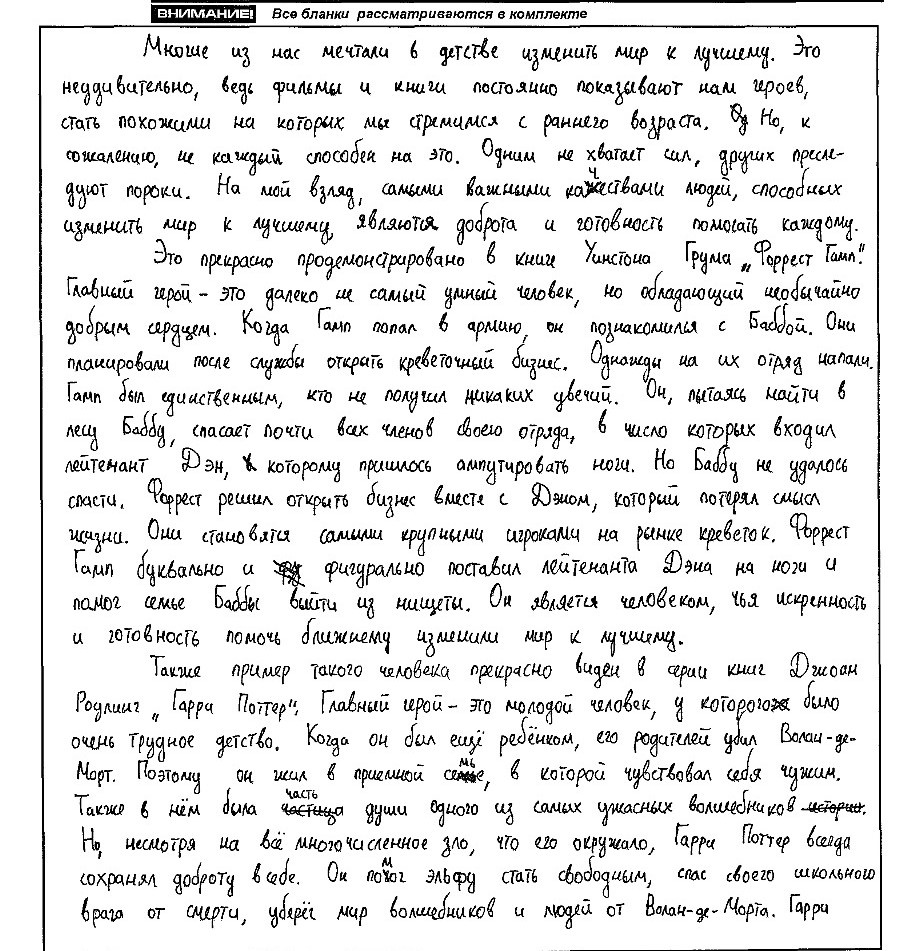 ВНИМАНИЕ! Все бланки рассматриваются в комплекте
Многие из нас мечтали в детстве изменить мир к лучшему. Это
неудивительно, ведь фильмы и книги постоянно показывают нам героев,
стать похожими на которых мы стремимся с раннего возраста. Но, к
сожалению, не каждый способен на это. Одним не хватает сил, других пресле-
дуют пороки. На мой взгляд, самыми важными качествами людей, способных
изменить мир к лучшему, являются доброта и готовность помогать каждому.
Это прекрасно продемонстрировано в книге Уинстона Грума „Форрест Гамп".
Главный герой - это далеко не самый умный человек, но обладающий необычайно
добрым сердцем. Когда Гамп попал в армию, он познакомился с Баббой. Они
планировали после службы открыть креветочный бизнес. Однажды на их отряд напали.
Гамп был единственным, кто не получил никаких увечий. Он, пытаясь найти в
лесу Баббу, спасает почти всех членов своего отряда, в число которых входил
лейтенант Дэн, которому пришлось ампутировать ноги. Но Баббу не удалось
спасти. Форрест решил открыть бизнес вместе с Дэном, который потерял смысл
жизни. Они становятся самыми крупными игроками на рынке креветок. Форрест
Гамп буквально и фигурально поставил лейтенанта Дэна на ноги и
помог семье Баббы выйти из нищеты. Он является человеком, чья искренность
и готовность помочь ближнему изменили мир к лучшему.
Также пример такого человека прекрасно виден в серии книг Джоан
Роулинг „Гарри Поттер". Главный герой - это молодой человек, у которого было
очень трудное детство. Когда он был ещё ребёнком, его родителей убил Волан-де-
Морт. Поэтому он жил в приемной семье, в которой чувствовал себя чужим.
Также в нём была часть души одного из самых ужасных волшебников.
Но, несмотря на всё многочисленное зло, что его окружало, Гарри Поттер всегда
сохранял доброту в себе. Он помог эльфу стать свободным, спас своего школьного
врага от смерти, уберёг мир волшебников и людей от Волан-де-Морта. Гарри